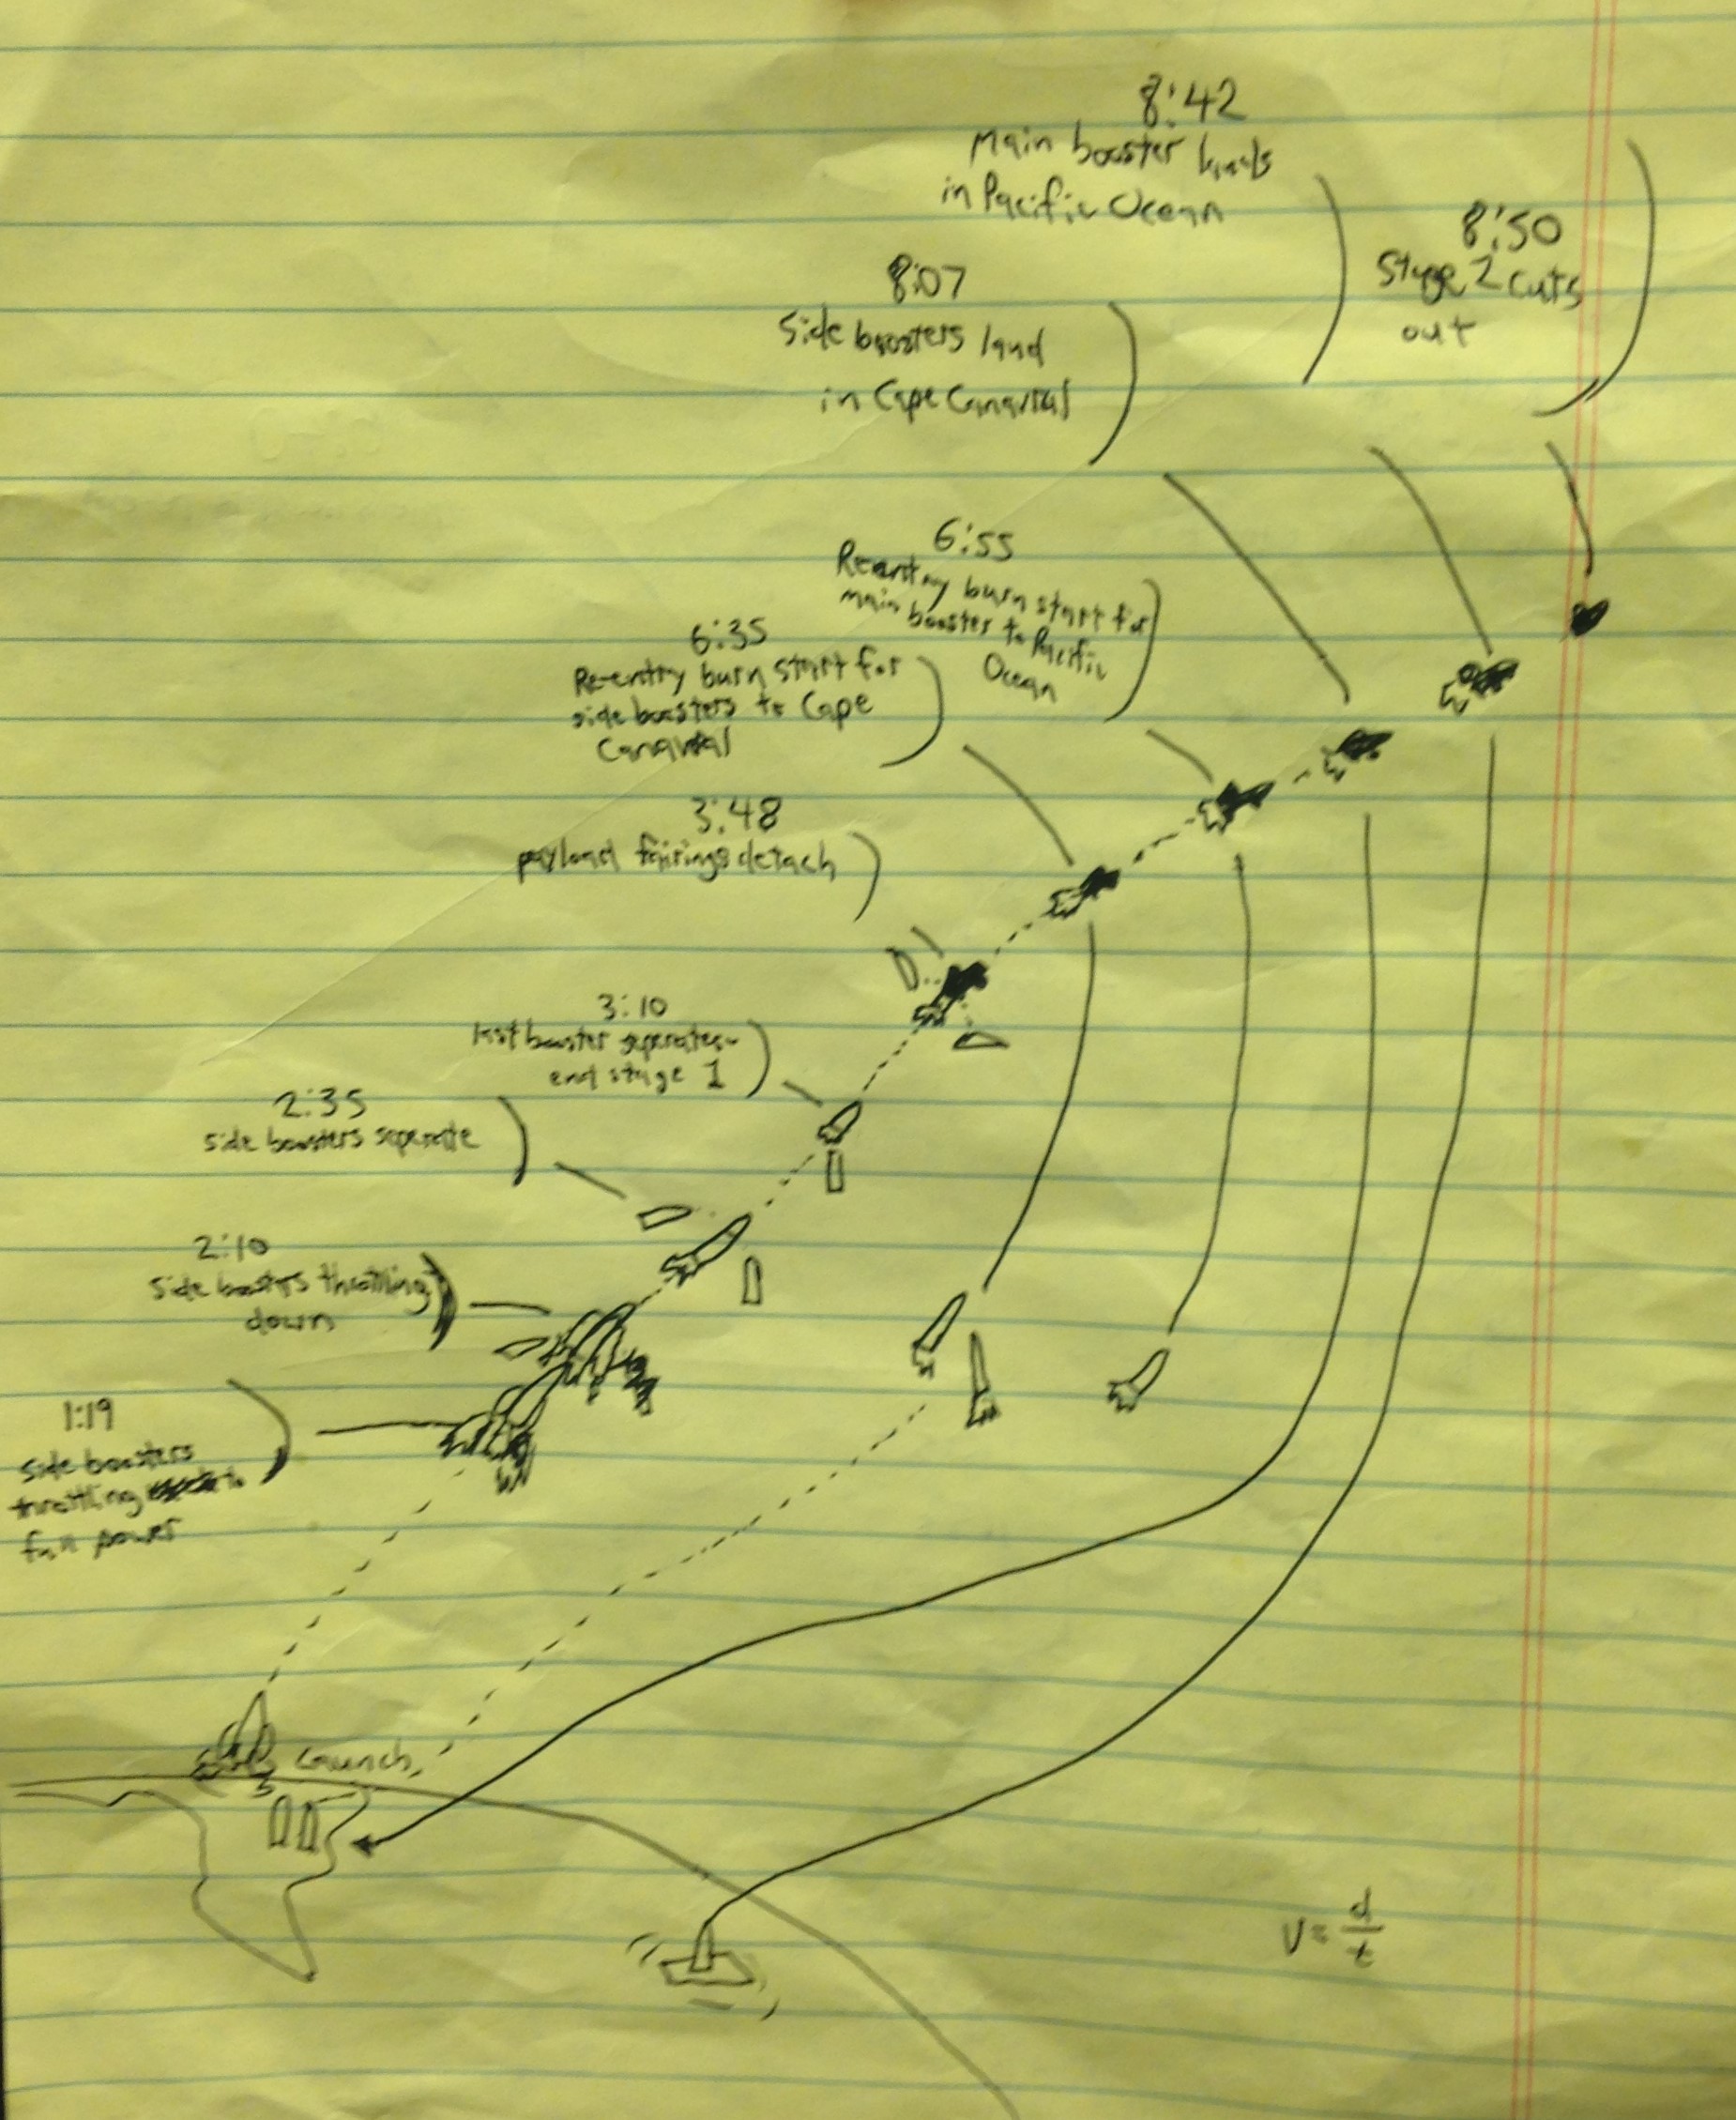 8:42
Main booster lands
in Pacific Ocean
8:50
Stage 2 cuts
out
8:07
Side boosters land
in Cape Canaveral
6:55
Reentry burn start for
main booster to Pacific
Ocean
6:35
Re-entry burn start for
side boosters to Cape
Canaveral
3:48
payload fairings detach
3:10
last booster separates-
end stage 1
2:35
side boosters seperate
2:10
Side boosters throttling
down
1:19
side boosters
throttling to
full power
Launch
V = d/t